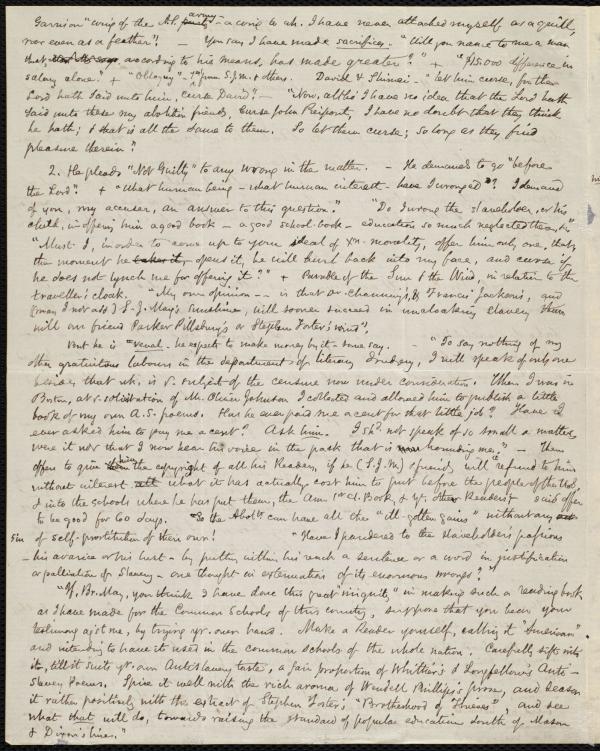 Garrison" wing of the A.S. army – a wing to wh. I have never attached myself as a quill,
nor even as a feather"! — You say I have made sacrifices. – "Will you name to me a man
that, according to his means, has made greater?" + "$15.000 difference in
salary alone." + "Obloquy" – from S.J.M. & others. David & Shimei – "let him curse, for the
Lord hath said unto him, Curse David"? — "Now, altho' I have no idea that the Lord hath
said unto these my abolitn friends, Curse John Pierpont, I have no doubt that they think
he hath; & that is all the same to them. So let them curse; so long as they find
pleasure therein"!
2. He pleads "Not Guilty" to any wrong in the matter. – He demands to go "before
the Lord". + "What human being – what human interest – have I wronged"? I demand
of you, my accuser, an answer to this question." "Do I wrong the slaveholder, or his
child, in offering him a good book – a good school-book – education so much neglected there, &c"
"Must I, in order to come up to your ideal of Xn. morality, offer him only one, that,
the moment he opens it, he will hurl back into my face, and curse if
he does not lynch me for offering it?" + Parable of the Sun & the Wind, in relation to the
traveller's cloak. "My own opinion – – is that Dr. Channing's, & Francis Jackson's, and
(may I not add) S. J. May's sunshine, will sooner succeed in uncloaking slavery than
will our friend Parker Pillsbury's or Stephen Foster's wind",
But he is "venal". he expects to make money by it – some say. – "To say nothing of my
other gratuitous labours in the department of literary drudgery, I will speak of only one
besides that wh. is ye. subject of the censure now under consideration. When I was in
Boston, at ye. solicitation of Mr. Oliver Johnson I collected and allowed him to publish a little
book of my own A.S. poems. Has he ever paid me a cent for that little job? Have I
ever asked him to pay me a cent? Ask him. I shd. not speak of so small a matter,
were it not that I now hear his voice in the pack that is hounding me." – Then
offers to give him the copyright of all his Readers, if he (S.J.M) & friends will refund to him
without interest what it has actually cost him to put before the people of the U.S.
& into the schools where he has put them, the Am. 1st Cl. Book, & ye. other Readers! said offer
to be good for 60 days. "So the Abolts. can have all the "ill-gotten gains" without any
sin of self-prostitution of their own! "Have I pandered to the slaveholder's passions
– his avarice or his lust – by putting within his reach a sentence or a word in justification
or palliation of Slavery – one thought in extenuation of its enormous wrongs?"
"If, Br. May, you think I have done this great "iniquity" in making such a reading book
as I have made for the Common Schools of this country, suppose that you bear your
testimony agst me, by trying yr. own hand. Make a Reader yourself, calling it "American"
and intending to have it used in the common schools of the whole nation. Carefully sift into
it, till it suits yr. own Antislavery taste, a fair proportion of Whittier's & Longfellow's Anti-
Slavery Poems. Spice it well with the rich aroma of Wendell Phillips's prose, and season
it rather positively with the extract of Stephen Foster's "Brotherhood of Thieves", and see
what that will do, towards raising the standard of popular education south of Mason
& Dixon's line."